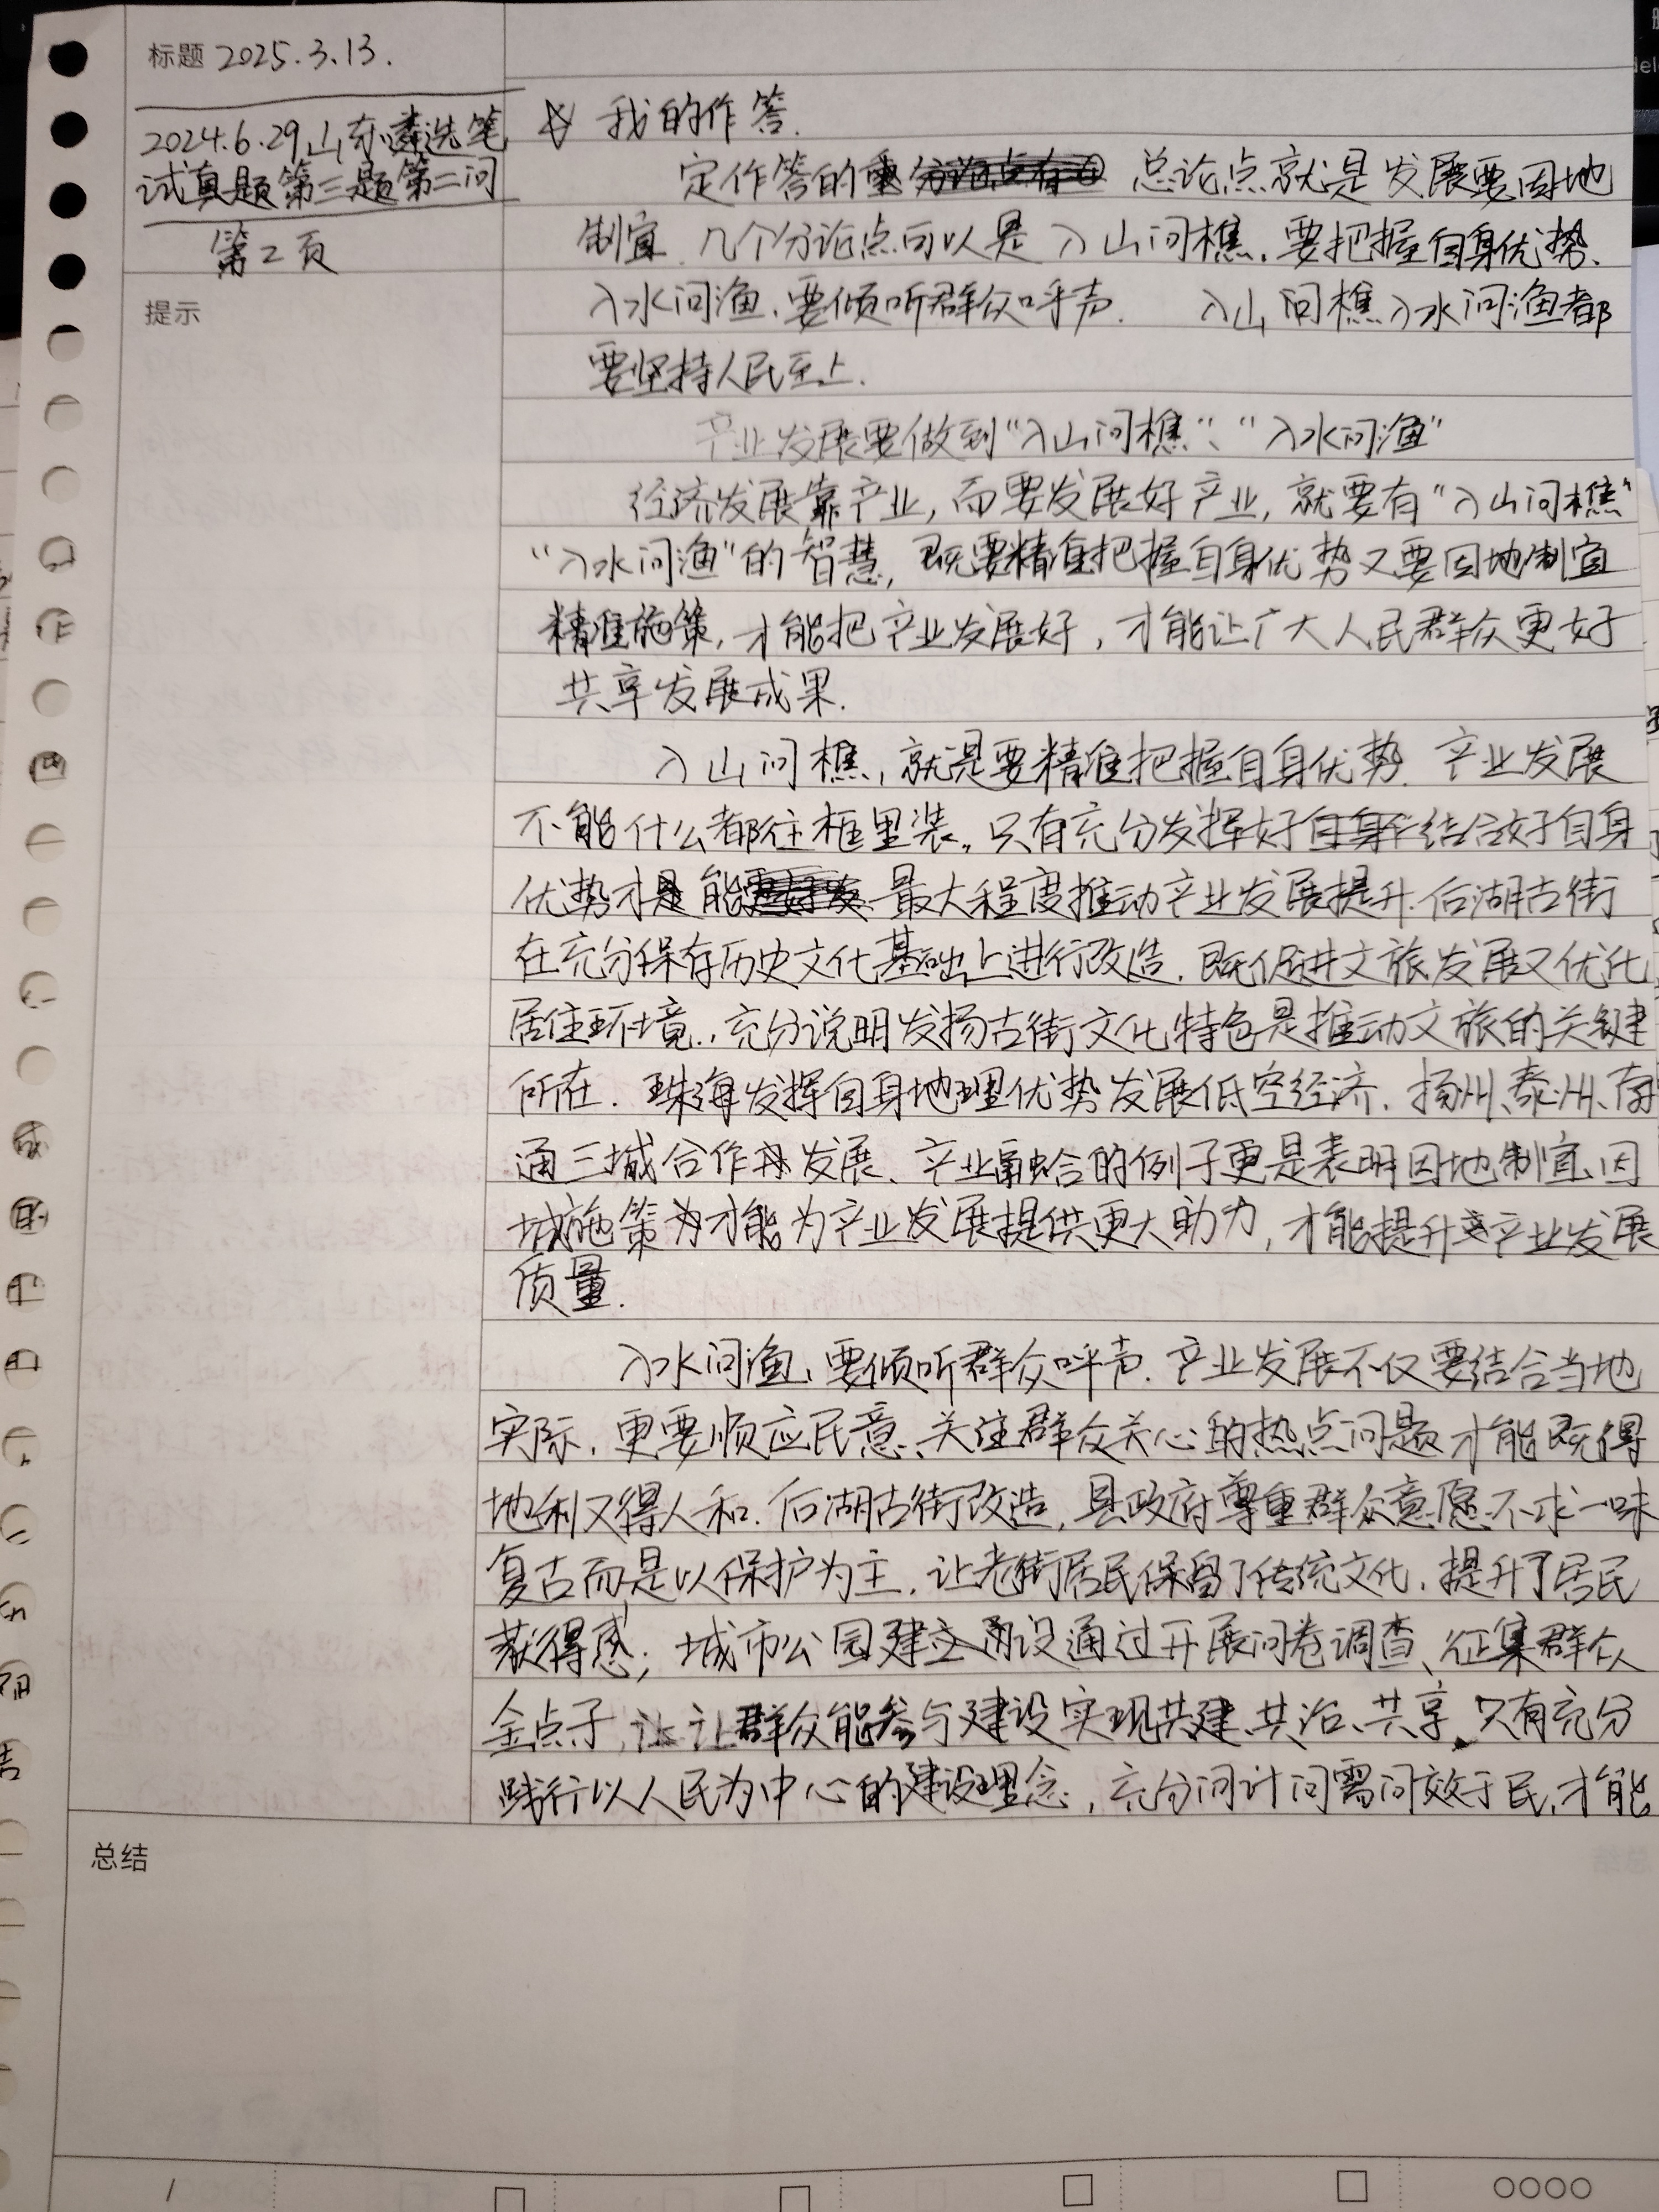 标题 2025.3.13.
2024.6.29山东遴选笔
试真题第三题第二问
第2页
提示
☆ 我的作答.
定作答的 总论点就是发展要因地
制宜.几个分论点可以是入山问樵,要把握自身优势、
入水问渔,要倾听群众呼声. 入山问樵入水问渔都
要坚持人民至上.
产业发展要做到“入山问樵”、“入水问渔”
经济发展靠产业,而要发展好产业,就要有“入山问樵”
“入水问渔”的智慧,既要精准把握自身优势又要因地制宜
精准施策,才能把产业发展好,才能让广大人民群众更好
共享发展成果.
入山问樵,就是要精准把握自身优势.产业发展
不能什么都往框里装,只有充分发挥好结合好自身
优势才能最大程度推动产业发展提升.后湖古街
在充分保存历史文化基础上进行改造,既促进文旅发展又优化
居住环境,充分说明发扬古街文化特色是推动文旅的关键
所在.珠海发挥自身地理优势发展低空经济,扬州、泰州、南
通三城合作发展、产业融合的例子更是表明因地制宜、因
城施策才能为产业发展提供更大助力,才能提升产业发展
质量.
入水问渔,要倾听群众呼声.产业发展不仅要结合当地
实际,更要顺应民意、关注群众关心的热点问题才能既得
地利又得人和.后湖古街改造,县政府尊重群众意愿不求一味
复古而是以保护为主,让老街居民保留了传统文化,提升了居民
获得感;城市公园建设通过开展问卷调查、征集群众
金点子,让让群众能参与建设实现共建、共治、共享.只有充分
践行以人民为中心的建设理念,充分问计问需问效于民,才能
总结